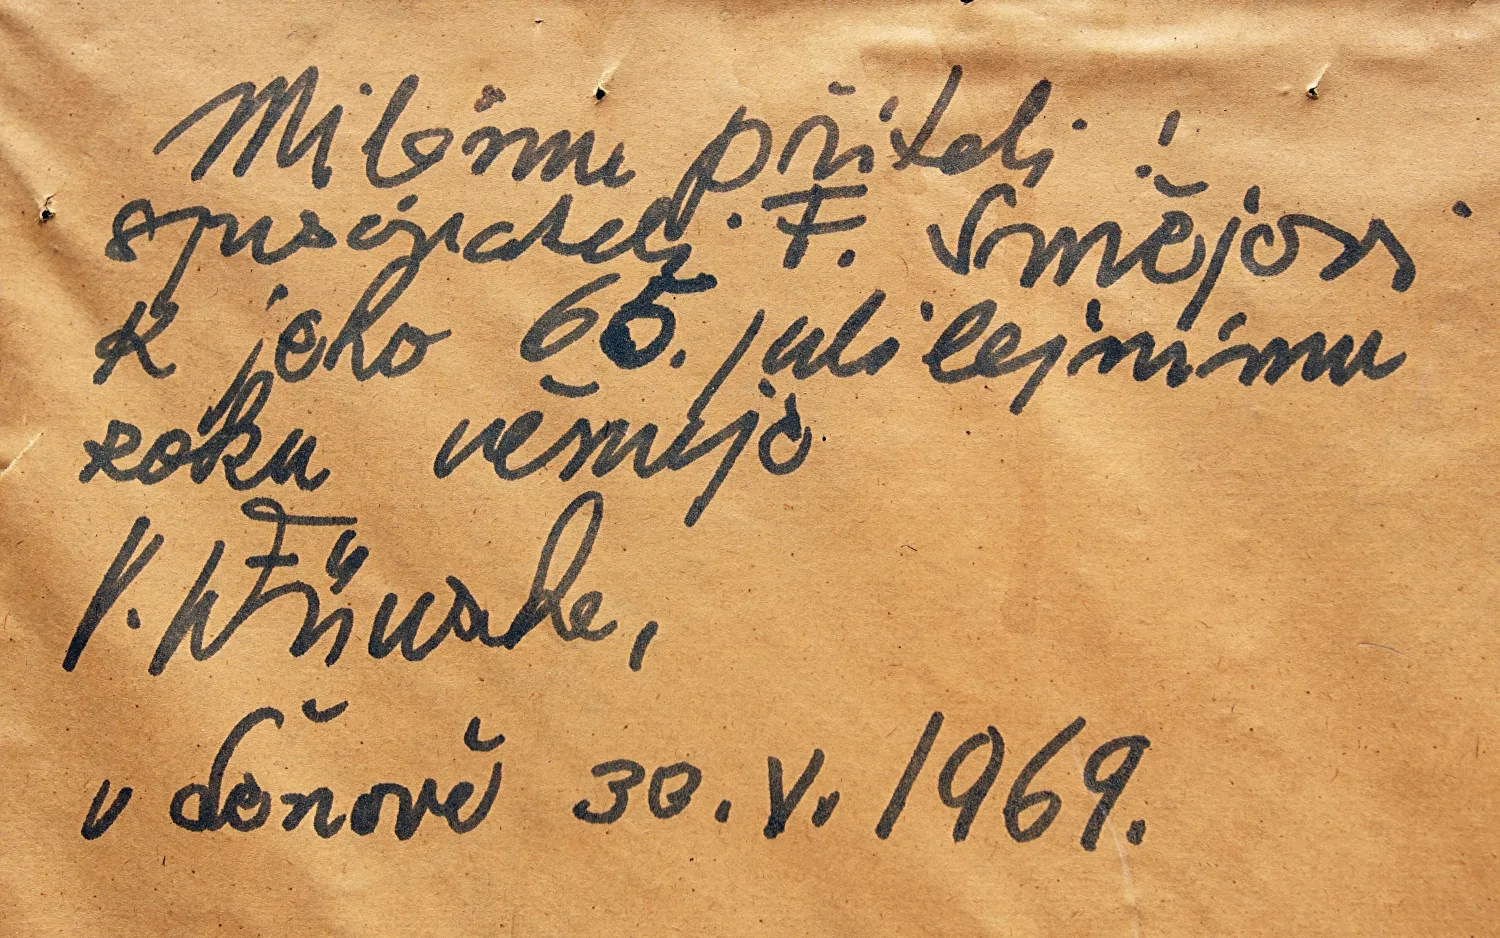 Milému příteli!
spisovateli F. Smějovi
k jeho 65. jubilejnímu
roku věnuje
V. Wünsche,
v Loňově 30. V. 1969.